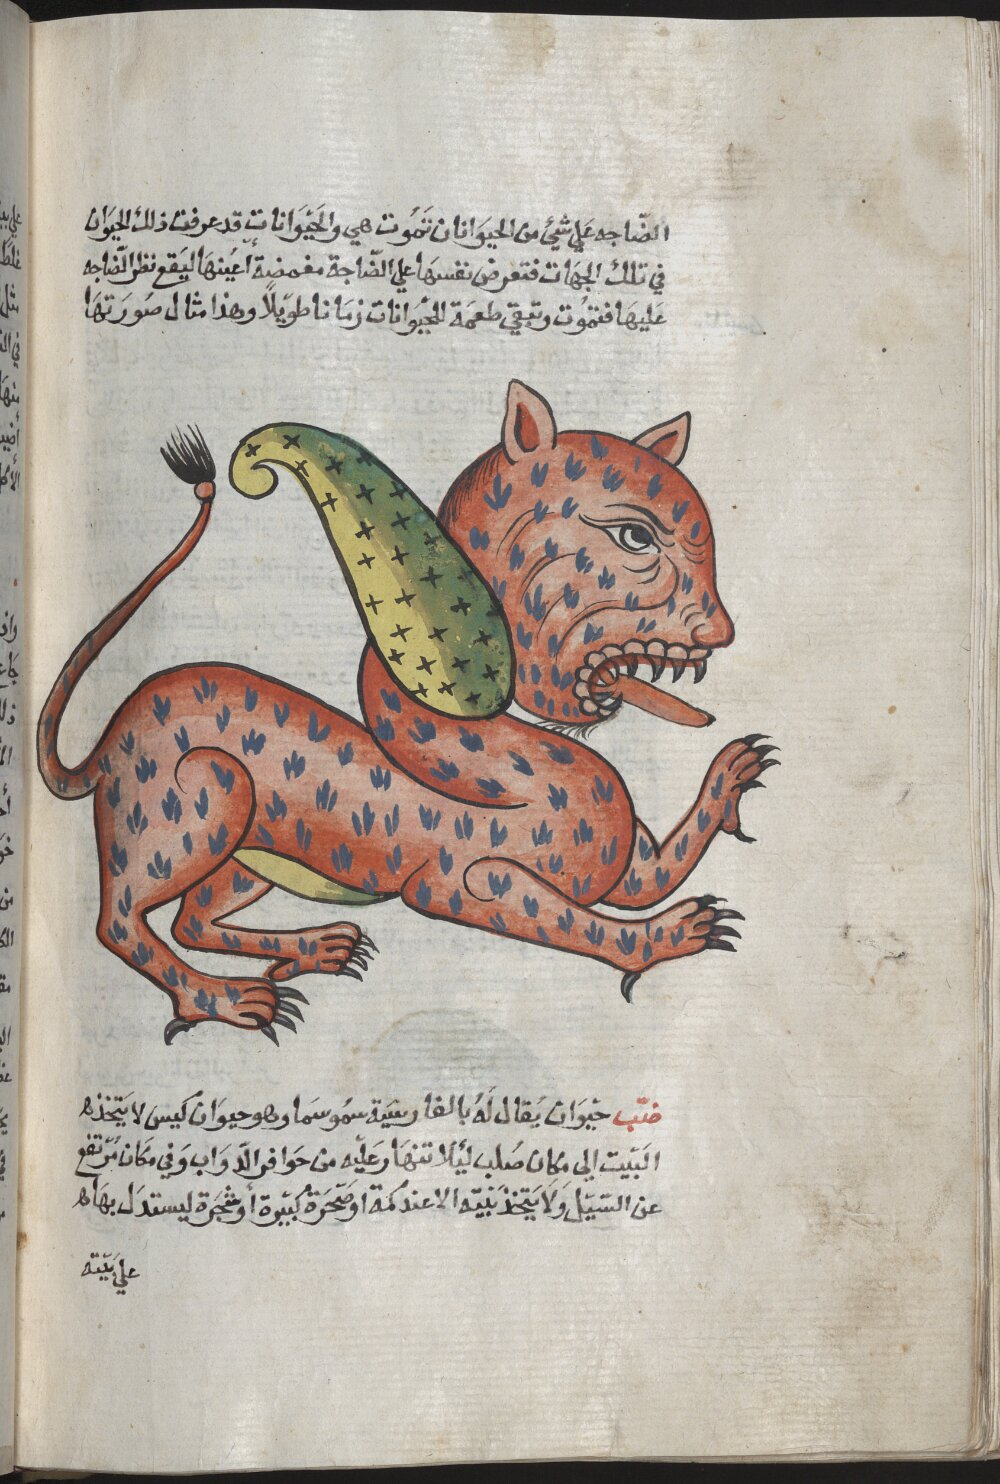 الضّاجه علي شئ من الحيوانات تموت هي والحيوانات قد عرفت ذلك الحيوان
في تلك الجهات فتعرض نفسها علي الضّاجة مغمضة أعينها ليقع نظر الضاجه
عليها فتموت وتبقي طعمة للحيوانات زمانا طويلًا وهذا مثال صورتها
ضبّ حيوان يقال له بالفارسية سموسما وهو حيوان كيس لا يتخذ
البيت الي مكان صلب لئلا تنهار عليه من حوافر الدواب وفي مكان مرتفع
عن السيل ولا يتخذ بيته الا عند كمة او صخرة كبيرة أو شجرة ليستدل بها
علي بيته